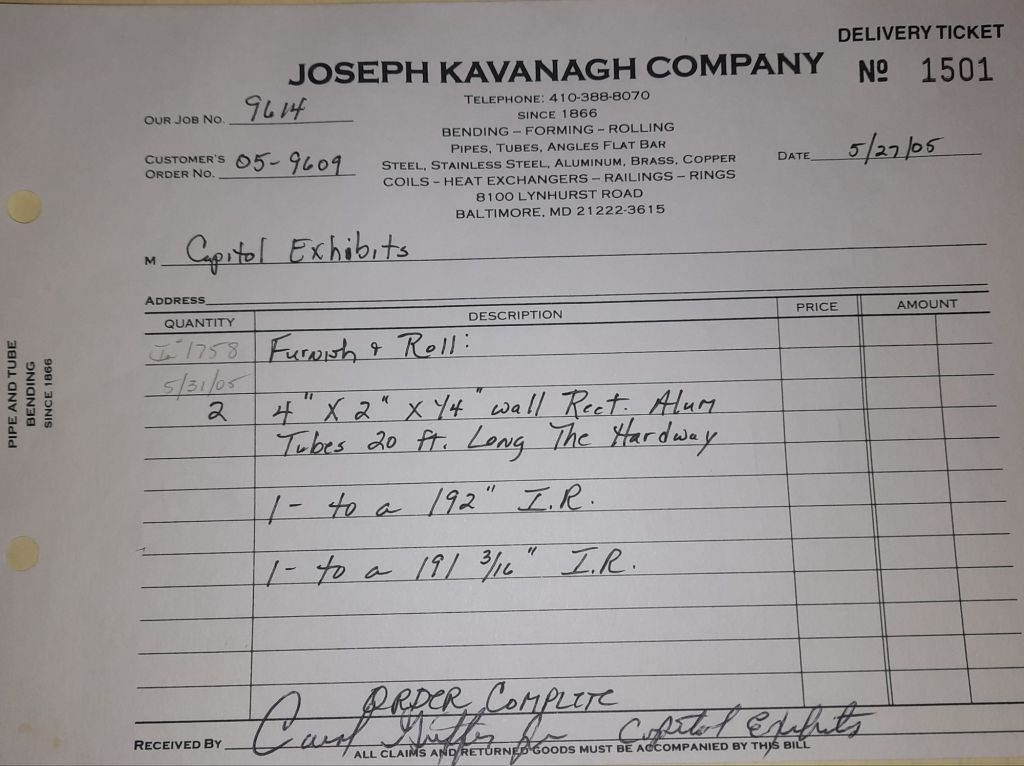 DELIVERY TICKET
JOSEPH KAVANAGH COMPANY
Nº 1501
TELEPHONE: 410-388-8070
SINCE 1866
BENDING – FORMING – ROLLING
PIPES, TUBES, ANGLES FLAT BAR
STEEL, STAINLESS STEEL, ALUMINUM, BRASS, COPPER
COILS – HEAT EXCHANGERS – RAILINGS – RINGS
8100 LYNHURST ROAD
BALTIMORE, MD 21222-3615
OUR JOB NO. 9614
CUSTOMER'S
ORDER NO. 05-9609
DATE 5/27/05
M Capitol Exhibits
ADDRESS
QUANTITY DESCRIPTION PRICE AMOUNT
1758 Furnish & Roll:
5/31/05
2 4" X 2" X 1/4" wall Rect. Alum
Tubes 20 ft. Long The Hardway
1- to a 192" I.R.
1- to a 191 3/16" I.R.
ORDER COMPLETE
RECEIVED BY Capitol Exhibits
ALL CLAIMS AND RETURNED GOODS MUST BE ACCOMPANIED BY THIS BILL
PIPE AND TUBE
BENDING
SINCE 1866